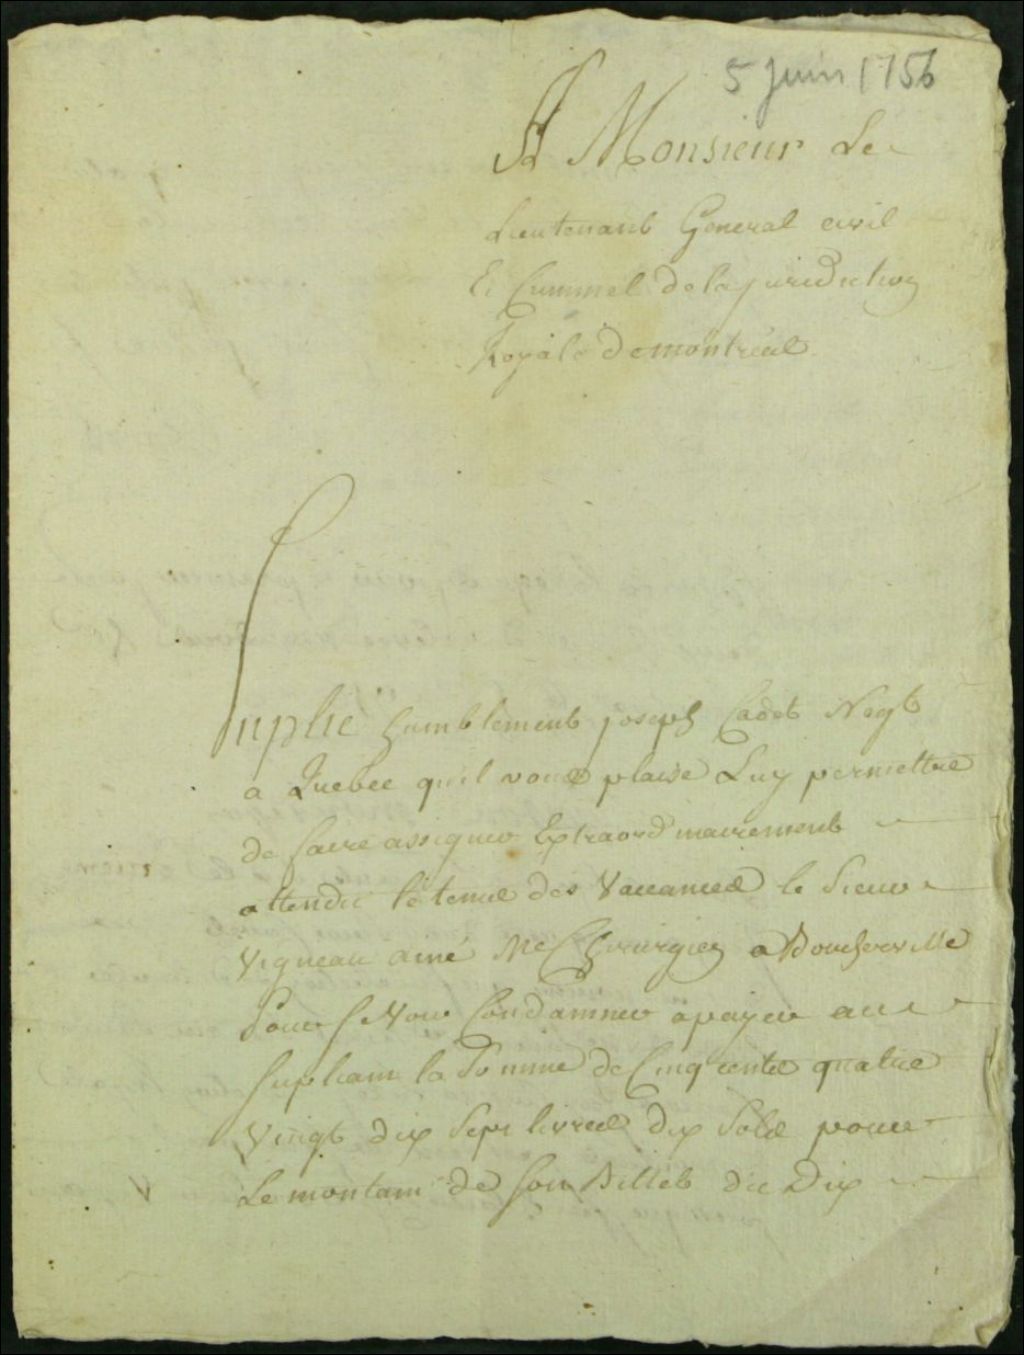 5 Juin 1756
A Monsieur Le
Lieutenant General civil
Et Criminel de la juridiction
Royale de montreal
Suplie humblement joseph Cadet Negt
a Quebec quil vous plaise Luy permettre
de faire assigner Extraordinairement
attendu le tems des Vacances le Sieur
Vigneau ainé Me Chirurgien a Boucherville
Pour se Voir Condamner a payer au
supliant la Somme de Cinq cents quatre
Vingt dix Sept livres dix Sols pour
Le montant de son Billet du Dix